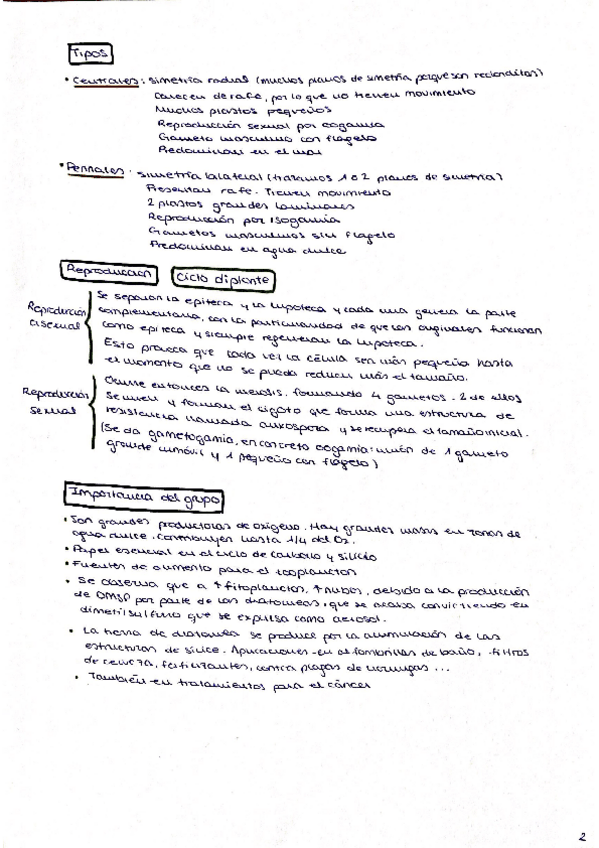 Tipos
• Centrales: simetría radial (muchos planos de simetría porque son redonditas)
Carecen de rafe, por lo que no tienen movimiento
Muchos plastos pequeños
Reproducción sexual por oogamia
Gameto masculino con flagelo
Predominan en el mar
• Pennales: simetría bilateral (trazamos 1 o 2 planos de simetría)
Presentan rafe. Tienen movimiento
2 plastos grandes laminares
Reproducción por Isogamia
Gametos masculinos sin flagelo
Predominan en agua dulce
Reproducción Ciclo diplonte
Reproducción asexual
Se separan la epiteca y la hipoteca y cada una genera la parte
complementaria, con la particularidad de que las originales funcionan
como epiteca y siempre regeneran la hipoteca.
Esto provoca que cada vez la célula sea más pequeña hasta
el momento que no se pueda reducir más el tamaño.
Reproducción sexual
Ocurre entonces la meiosis, formando 4 gametos. 2 de ellos
se unen y forman el cigoto que forma una estructura de
resistencia llamada auxospora y se recupera el tamaño inicial.
(Se da gametogamia, en concreto oogamia: unión de 1 gameto
grande inmóvil y 1 pequeño con flagelo)
Importancia del grupo
• Son grandes productoras de oxígeno. Hay grandes masas en zonas de
agua dulce. Contribuyen hasta 1/4 del O₂.
• Papel esencial en el ciclo de carbono y silicio
• Fuentes de alimento para el zooplancton
• Se observa que a ↑ fitoplancton, ↑ nubes, debido a la producción
de DMSP por parte de las diatomeas, que se acaba convirtiendo en
dimetilsulfuro que se expulsa como aerosol.
• La tierra de diatomea se produce por la acumulación de las
estructuras de sílice. Aplicaciones en alfombrillas de baño, filtros
de cerveza, fertilizantes, contra plagas de hormigas ...
• También en tratamientos para el cáncer
2